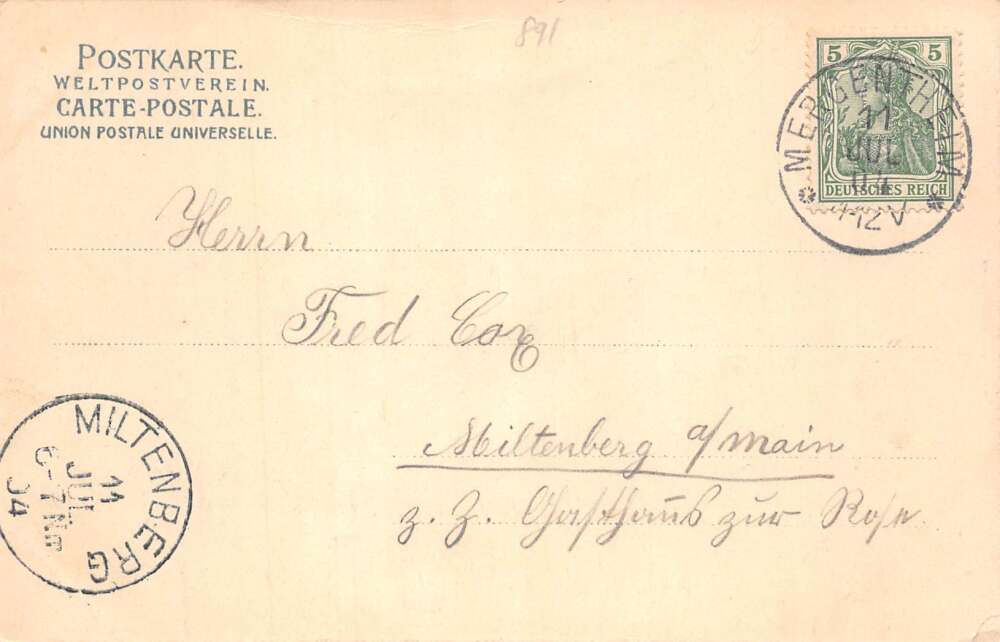 891
POSTKARTE.
WELTPOSTVEREIN.
CARTE-POSTALE.
UNION POSTALE UNIVERSELLE.
5 5
DEUTSCHES REICH
MERGENTHEIM
11
JUL
04
Herrn
Fred Cox
Miltenberg a/Main
z. Z. Gasthaus zur Rose
MILTENBERG
11
JUL
6-7 Nm
04